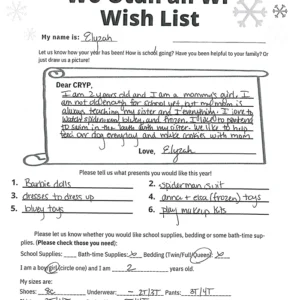 Wish List
My name is: Elyzah
Let us know how your year has been! How is school going? Have you been helpful to your family? Or
just draw us a picture!
Dear CRYP,
I am 2 years old and I am a mommy's girl. I
am not old enough for school yet, but my mom is
always teaching my sister and I everything. I love to
watch spiderman, bluey, and frozen. I love to pretend
to swim in the bath with my sister. We like to help
our dog everyday and make cookies with mom.
Love, Elyzah
Please tell us what presents you would like this year!
1. Barbie dolls
2. spiderman suit
3. dresses to dress up
4. anna + elsa (frozen) toys
5. bluey toys
6. play makeup kits
Please let us know whether you would like school supplies, bedding or some bath-time sup-
plies. (Please check those you need):
School Supplies: Bath-time Supplies: Bedding (Twin/Full/Queen):
I am a boy/girl (circle one) and I am 2 years old.
My sizes are:
Shoes: 8c Underwear: 2T/3T Pants: 3T/4T